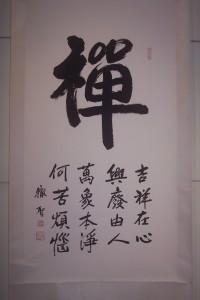 禪
吉祥在心
興廢由人
萬象本淨
何苦煩惱